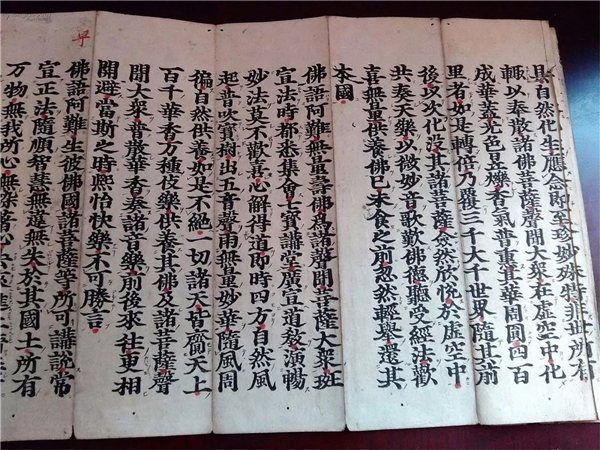 具自然化生應念即至珍妙殊特非世所有
輒以奉散諸佛菩薩聲聞大衆在虛空中化
成華蓋光色晃爍香氣普熏其華周圓四百
里者如是轉倍乃覆三千大千世界隨其前
後以次化没其諸菩薩僉然欣悅於虛空中
共奏天樂以微妙音歌歎佛德聽受經法歡
喜無量供養佛已未食之前忽然輕舉還其
本國
佛語阿難無量壽佛爲諸聲聞菩薩大衆班
宣法時都悉集會七寶講堂廣宣道教演暢
妙法莫不歡喜心解得道即時四方自然風
起普吹寶樹出五音聲雨無量妙華隨風周
徧自然供養如是不絕一切諸天皆齎天上
百千華香万種伎樂供養其佛及諸菩薩聲
聞大衆普散華香奏諸音樂前後來往更相
開避當斯之時熙怡快樂不可勝言
佛語阿難生彼佛國諸菩薩等所可講說常
宣正法隨順智慧無違無失於其國土所有
万物無我所心無染著心